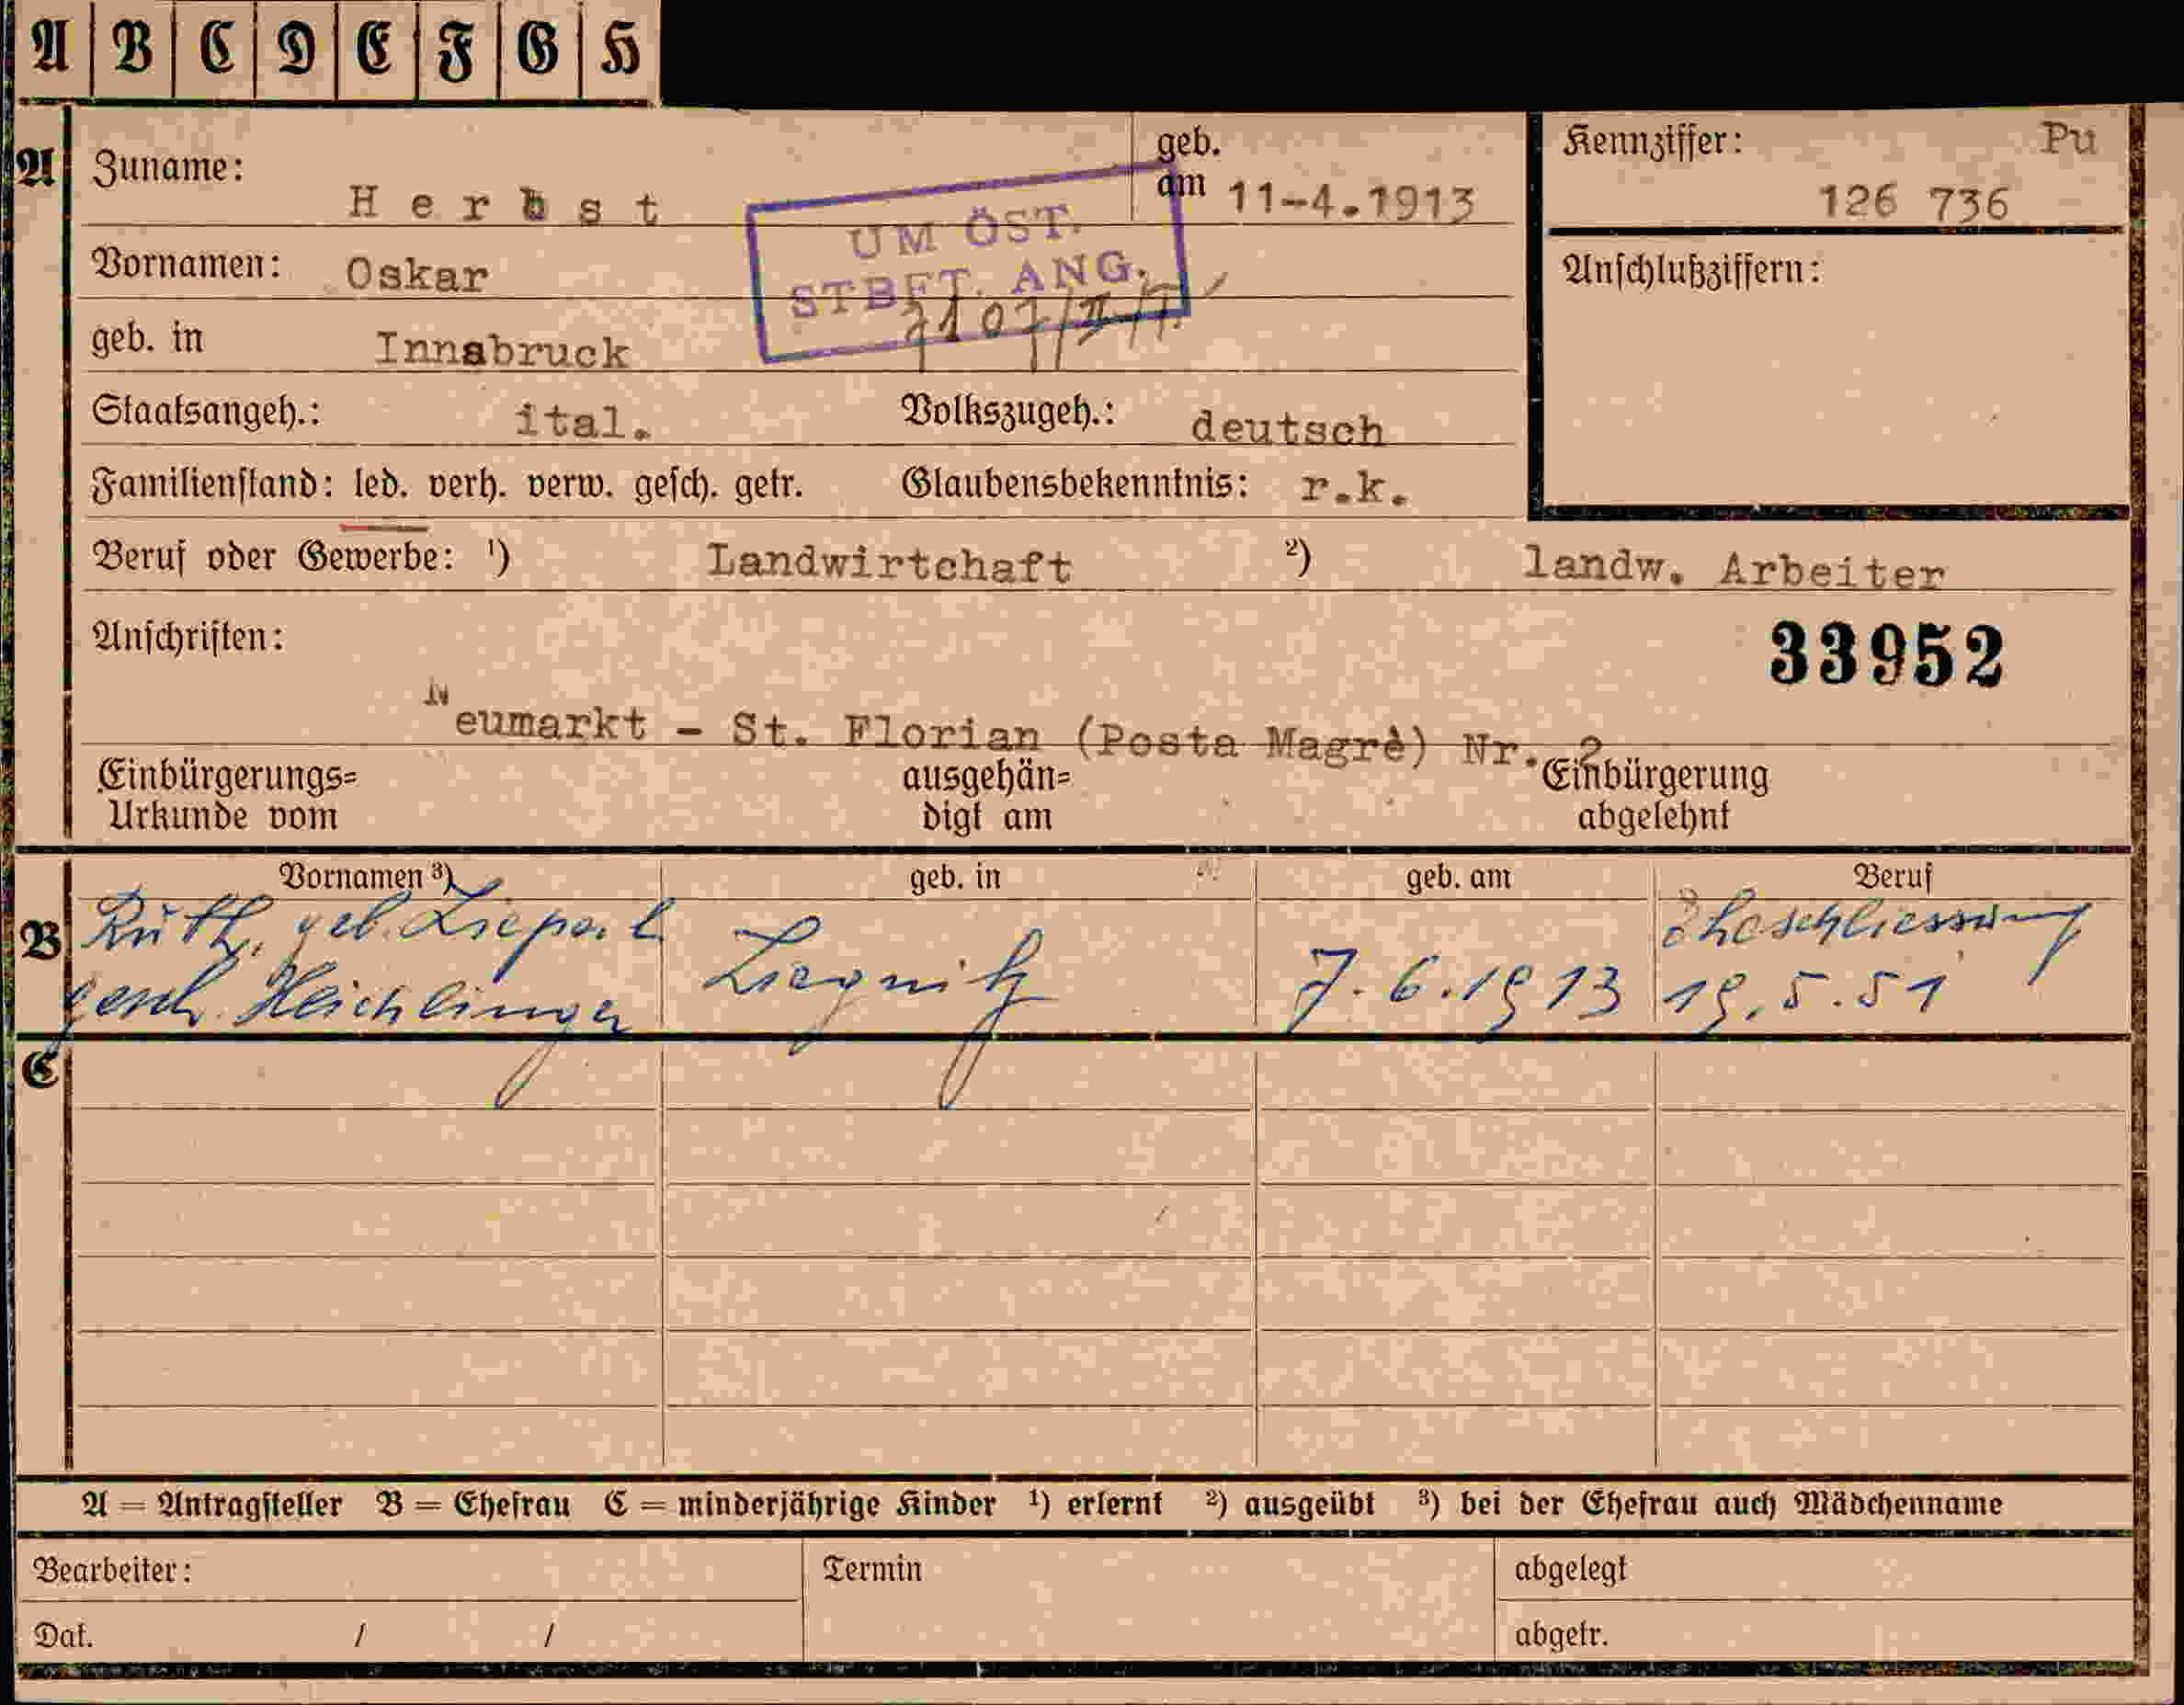 A B C D E F G H
A
Zuname: Herbst
geb. am 11-4.1913
Kennziffer: Pu
126 736
UM ÖST.
STBFT. ANG.
Vornamen: Oskar
Anschlußziffern:
geb. in Innsbruck
Staatsangeh.: ital. Volkszugeh.: deutsch
Familienstand: led. verh. verw. gesch. getr. Glaubensbekenntnis: r.k.
Beruf oder Gewerbe: ¹) Landwirtchaft ²) landw. Arbeiter
Anschriften:
33952
Neumarkt - St. Florian (Posta Magrè) Nr. 2
Einbürgerungs= ausgehän= Einbürgerung
Urkunde vom digt am abgelehnt
Vornamen ³) geb. in geb. am Beruf
B Ruth, geb. Eheschliessung
gesch. Heichlinger Liegnitz 7.6.1913 19.5.51
C
A = Antragsteller B = Ehefrau C = minderjährige Kinder ¹) erlernt ²) ausgeübt ³) bei der Ehefrau auch Mädchenname
Bearbeiter: Termin abgelegt
Dat. / / abgetr.